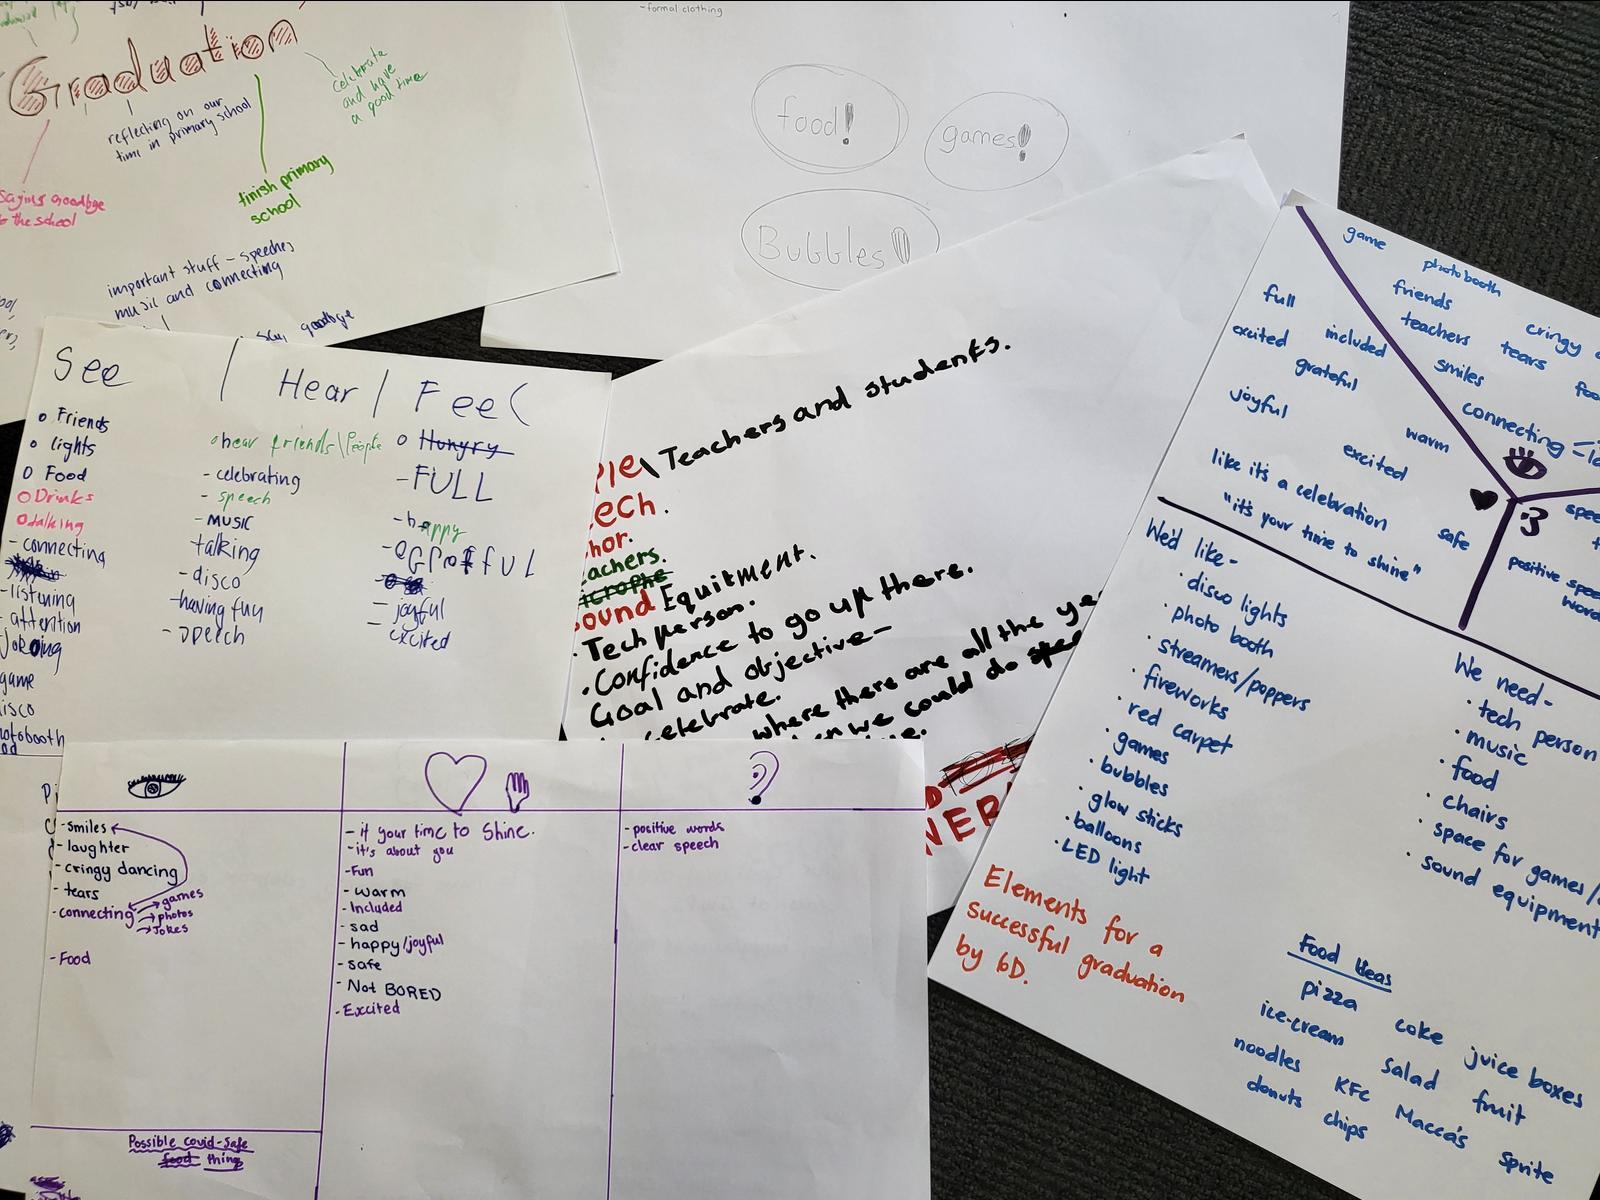 Graduation
reflecting on our
time in primary school
celebrate
and have
a good time
finish primary
school
saying goodbye
to the school
important stuff - speeches,
music and connecting
say goodbye
-formal clothing
food!
games!
Bubbles!
See
o Friends
o lights
o Food
o Drinks
o talking
- connecting
- listening
- attention
Jokoing
game
isco
hotobooth
Hear
o hear friends\People
- celebrating
- speech
- MUSIC
talking
- disco
- having fun
- speech
Feel
o Hungry
- FULL
- happy
- joyful
- excited
\Teachers and students.
ech.
hor.
achers.
icrophe
ound Equitment.
. Tech person.
. Confidence to go up there.
Goal and objective-
celebrate.
where there are all the yea
en we could do spee
NER
- smiles
- laughter
- cringy dancing
- tears
- connecting → games
→ photos
→ Jokes
- Food
Possible covid-safe
food things
- it your time to Shine.
- it's about you
- Fun
- warm
- Included
- sad
- happy/joyful
- safe
- Not BORED
- Excited
- positive words
- clear speech
game
photobooth
friends
teachers
tears
cringy
smiles
foo
connecting
full
included
excited
grateful
joyful
warm
excited
like it's a celebration
safe
"it's your time to shine"
spee
positive spee
word
We'd like-
· disco lights
· photo booth
· streamers/poppers
· fireworks
· red carpet
· games
· bubbles
· glow sticks
· balloons
· LED light
We need-
· tech person
· music
· food
· chairs
· space for games/
· sound equipment
Elements for a
successful graduation
by 6D.
Food Ideas
pizza coke juice boxes
ice-cream salad fruit
noodles KFC Macca's
donuts chips sprite